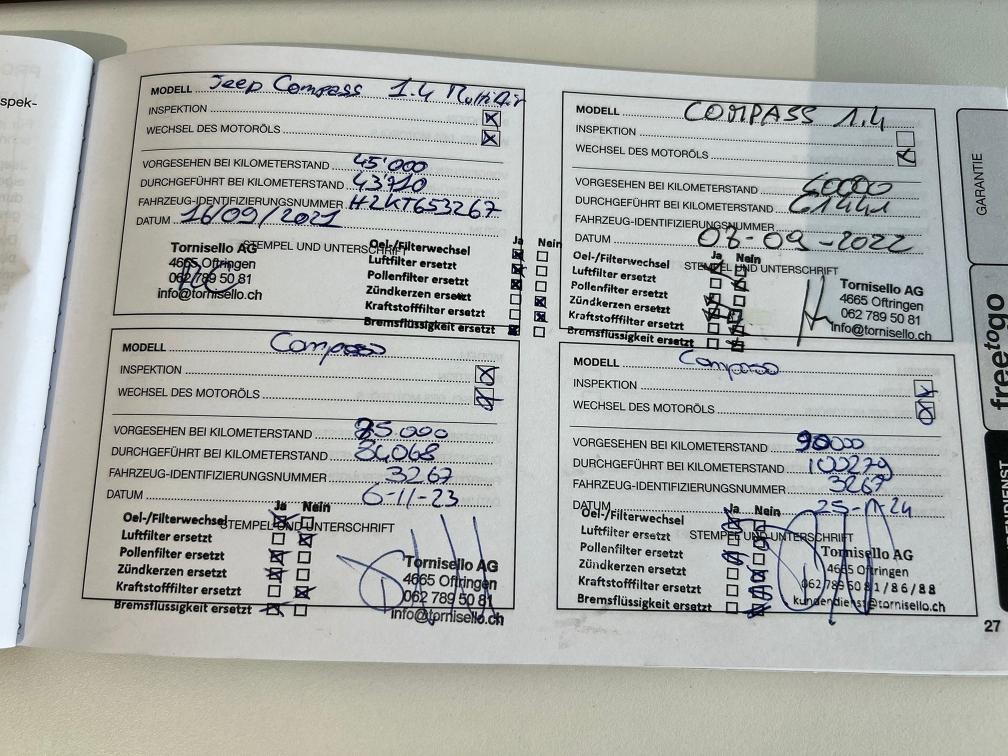 spek-
MODELL Jeep Compass 1.4 MultiAir
INSPEKTION
WECHSEL DES MOTORÖLS
VORGESEHEN BEI KILOMETERSTAND 45'000
DURCHGEFÜHRT BEI KILOMETERSTAND 43'910
FAHRZEUG-IDENTIFIZIERUNGSNUMMER H2KT653267
DATUM 16/09/2021
STEMPEL UND UNTERSCHRIFT
Tornisello AG
4665 Oftringen
062 789 50 81
info@tornisello.ch
Ja Nein
Oel-/Filterwechsel
Luftfilter ersetzt
Pollenfilter ersetzt
Zündkerzen ersetzt
Kraftstofffilter ersetzt
Bremsflüssigkeit ersetzt
MODELL COMPASS 1.4
INSPEKTION
WECHSEL DES MOTORÖLS
VORGESEHEN BEI KILOMETERSTAND 60000
DURCHGEFÜHRT BEI KILOMETERSTAND 61441
FAHRZEUG-IDENTIFIZIERUNGSNUMMER
DATUM 08-09-2022
STEMPEL UND UNTERSCHRIFT
Ja Nein
Oel-/Filterwechsel
Luftfilter ersetzt
Pollenfilter ersetzt
Zündkerzen ersetzt
Kraftstofffilter ersetzt
Bremsflüssigkeit ersetzt
Tornisello AG
4665 Oftringen
062 789 50 81
info@tornisello.ch
MODELL Compass
INSPEKTION
WECHSEL DES MOTORÖLS
VORGESEHEN BEI KILOMETERSTAND 75.000
DURCHGEFÜHRT BEI KILOMETERSTAND 84068
FAHRZEUG-IDENTIFIZIERUNGSNUMMER 3267
DATUM 6-11-23
STEMPEL UND UNTERSCHRIFT
Ja Nein
Oel-/Filterwechsel
Luftfilter ersetzt
Pollenfilter ersetzt
Zündkerzen ersetzt
Kraftstofffilter ersetzt
Bremsflüssigkeit ersetzt
Tornisello AG
4665 Oftringen
062 789 50 81
info@tornisello.ch
MODELL Compass
INSPEKTION
WECHSEL DES MOTORÖLS
VORGESEHEN BEI KILOMETERSTAND 90000
DURCHGEFÜHRT BEI KILOMETERSTAND 100279
FAHRZEUG-IDENTIFIZIERUNGSNUMMER 3267
DATUM 25-11-24
STEMPEL UND UNTERSCHRIFT
Ja Nein
Oel-/Filterwechsel
Luftfilter ersetzt
Pollenfilter ersetzt
Zündkerzen ersetzt
Kraftstofffilter ersetzt
Bremsflüssigkeit ersetzt
Tornisello AG
4665 Oftringen
062 789 50 81/86/88
kundendienst@tornisello.ch
27
GARANTIE
freetogo